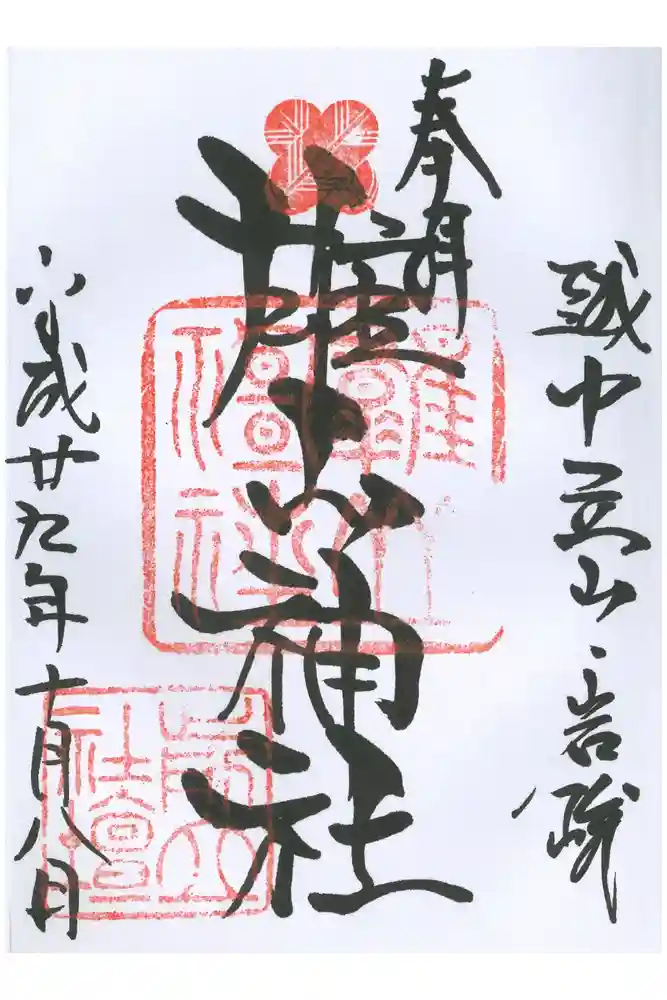 奉拝
越中立山・岩峅
雄山神社
平成廿九年十月八日
前立
社壇